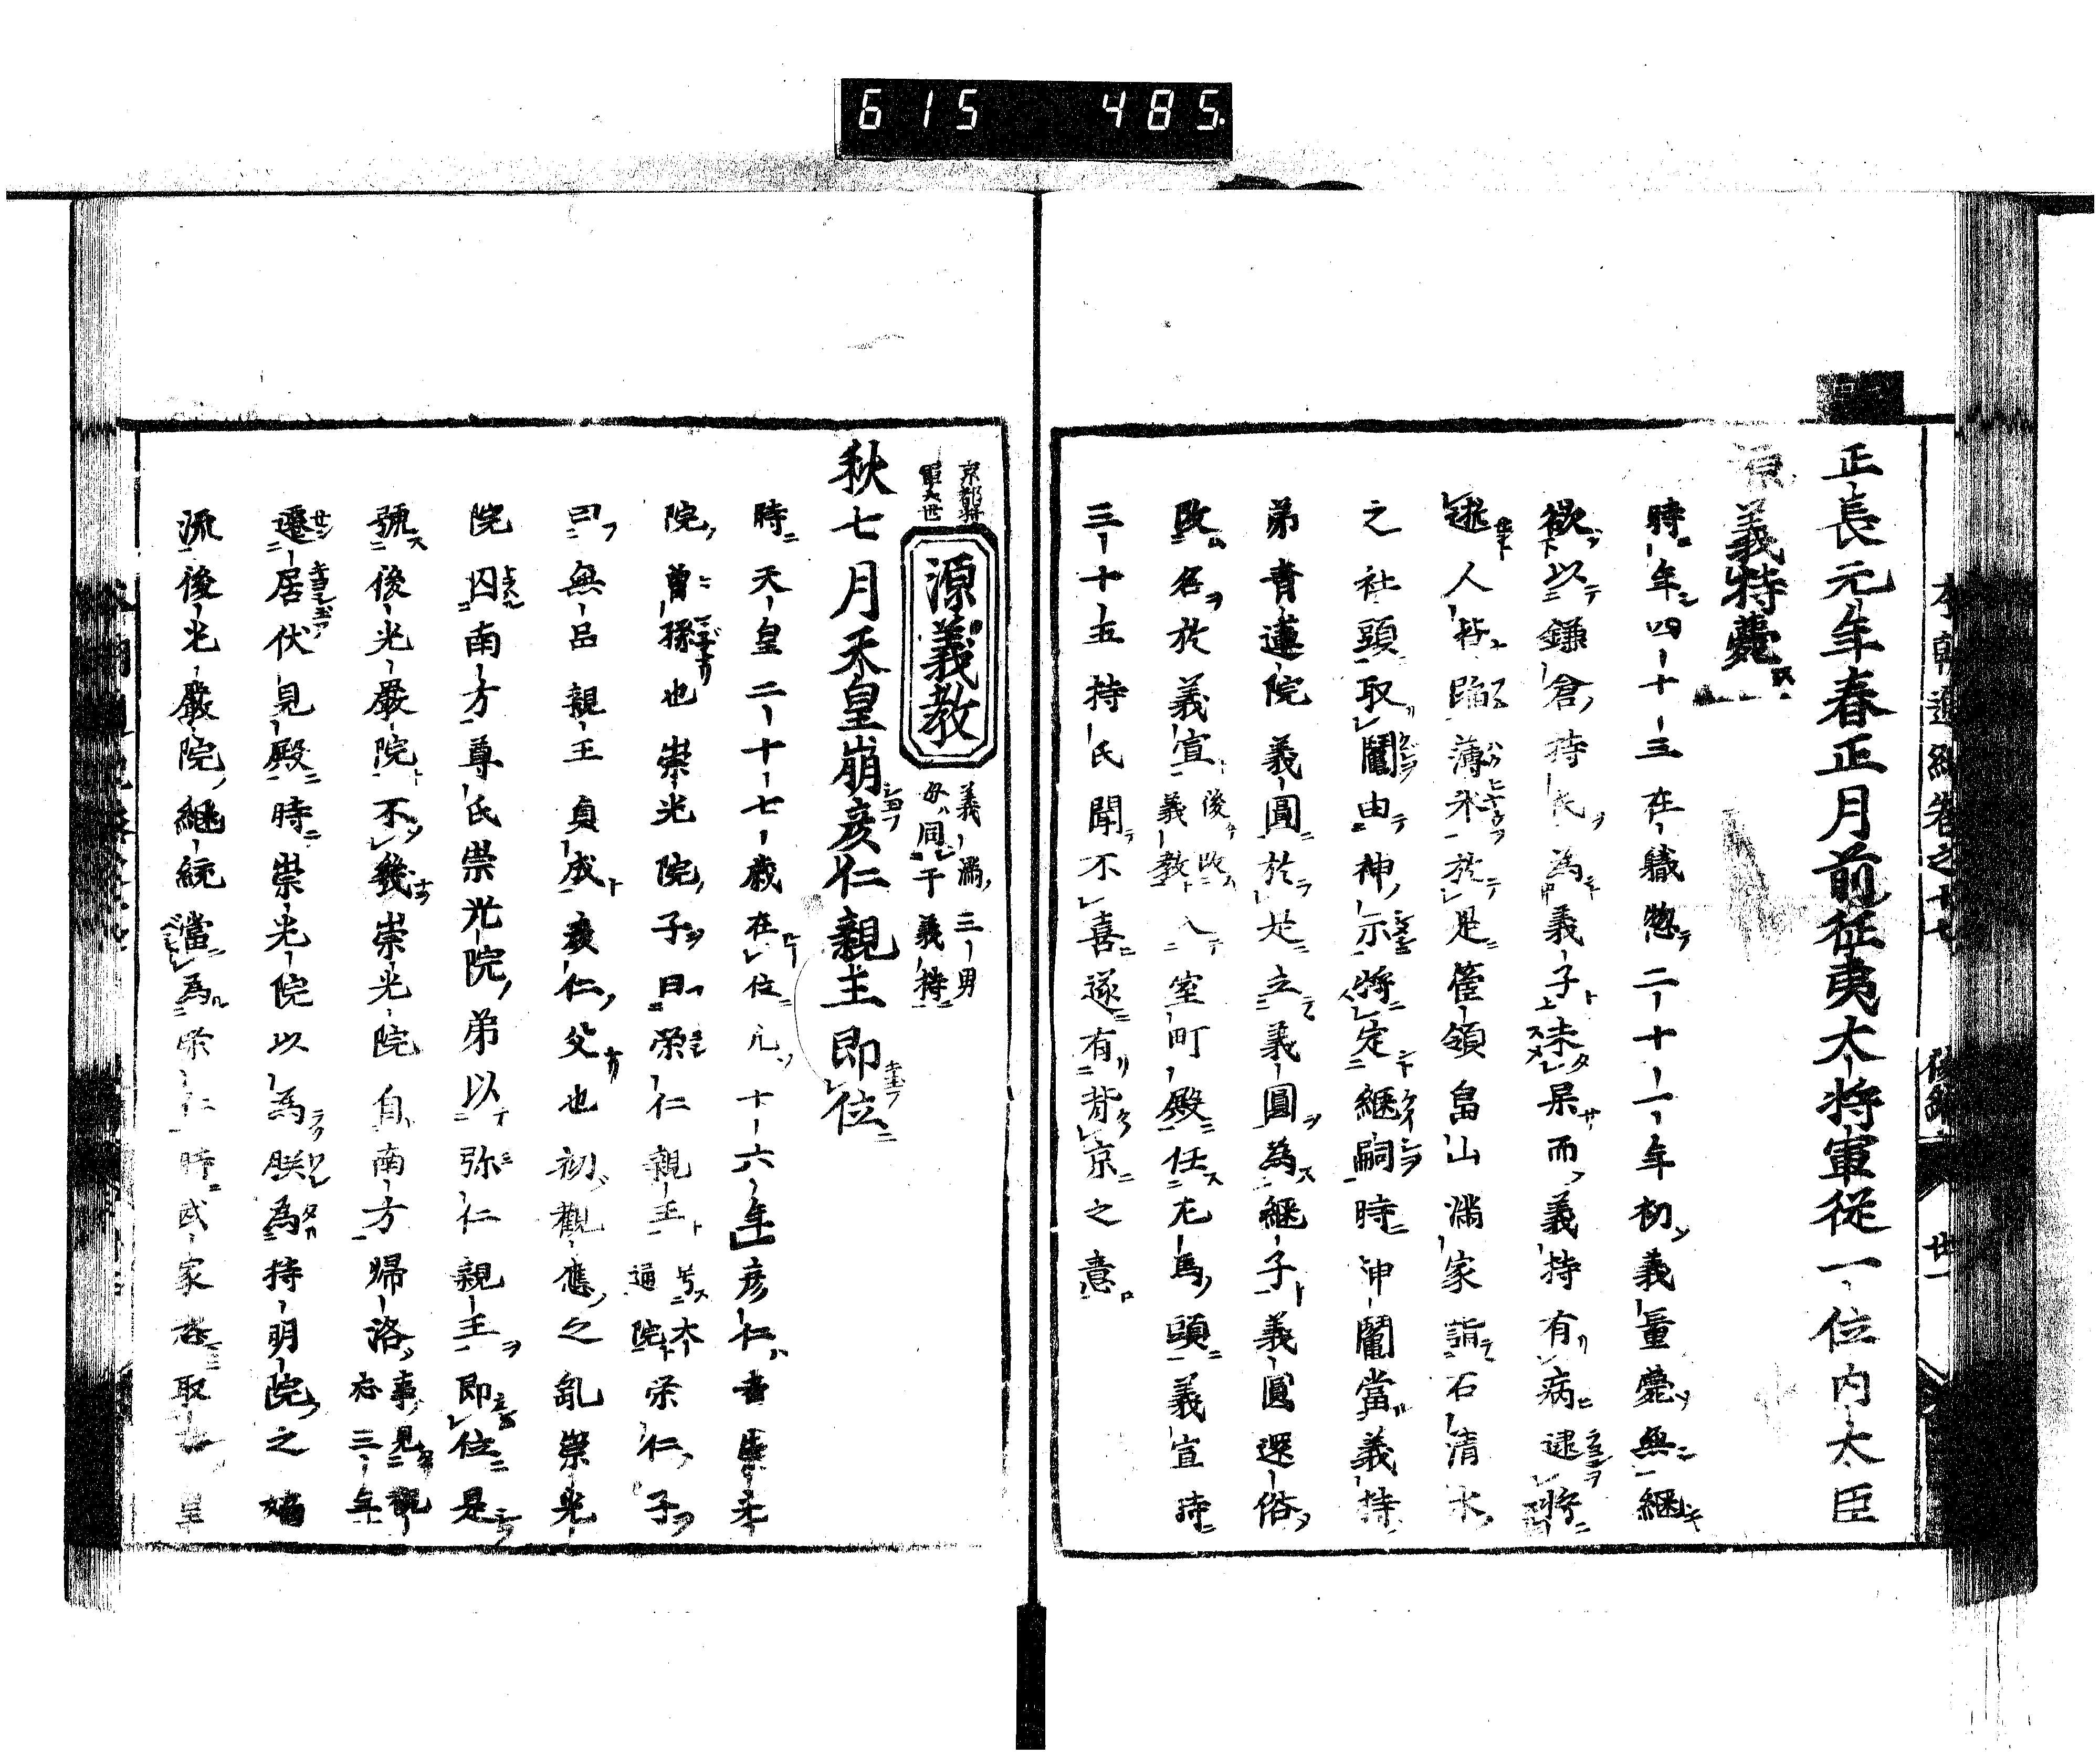 615 485.
正長元年春正月前征夷大将軍従一位内大臣
源義持薨
時年四十三在職惣二十一年初義量薨無継
欲以鎌倉持氏為義子未果而義持有病逮将
逝人皆臨薄氷於是管領畠山満家詣石清水
之社頭取鬮由神示将定継嗣時神鬮當義持
弟青蓮院義圓於是立義圓為継子義圓還俗
改名於義宣後改義教入室町殿任左馬頭義宣時
三十五持氏聞不喜遂有背京之意
京都将軍六世
源義教
義満三男
母同于義持
秋七月天皇崩彦仁親王即位
時天皇二十七歳在位凡十六年彦仁者
院曽孫也崇光院子曰栄仁親王号大通院栄仁子
曰無品親王貞成彦仁父也初観應之乱崇光
院囚南方尊氏崇光院弟以弥仁親王即位是
號後光厳院不幾崇光院自南方帰洛事見観應三年
遷居伏見殿時崇光院以為朕為持明院之嫡
流後光厳院継統當為栄仁時武家